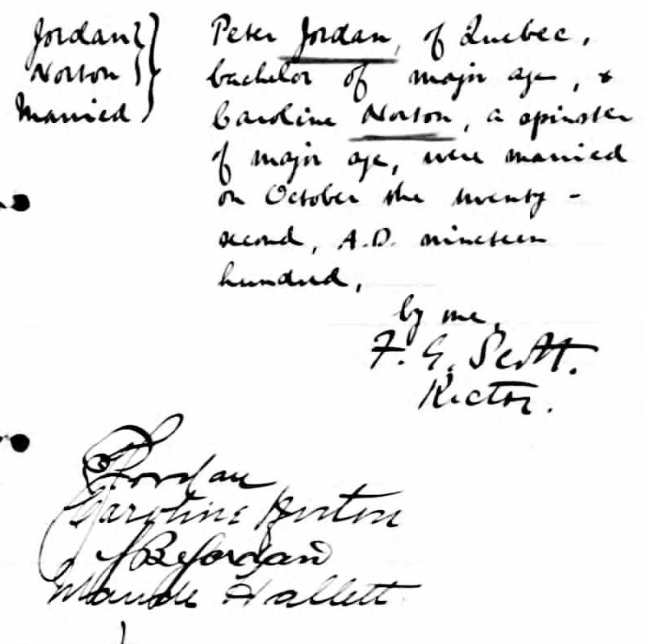 Jordan
Norton
Married
Peter Jordan, of Quebec,
bachelor of major age, &
Caroline Norton, a spinster
of major age, were married
on October the twenty -
second, A.D. nineteen
hundred,
by me,
F. G. Scott.
Rector.
P Jordan
Caroline Norton
Jordan
Maude Hallett